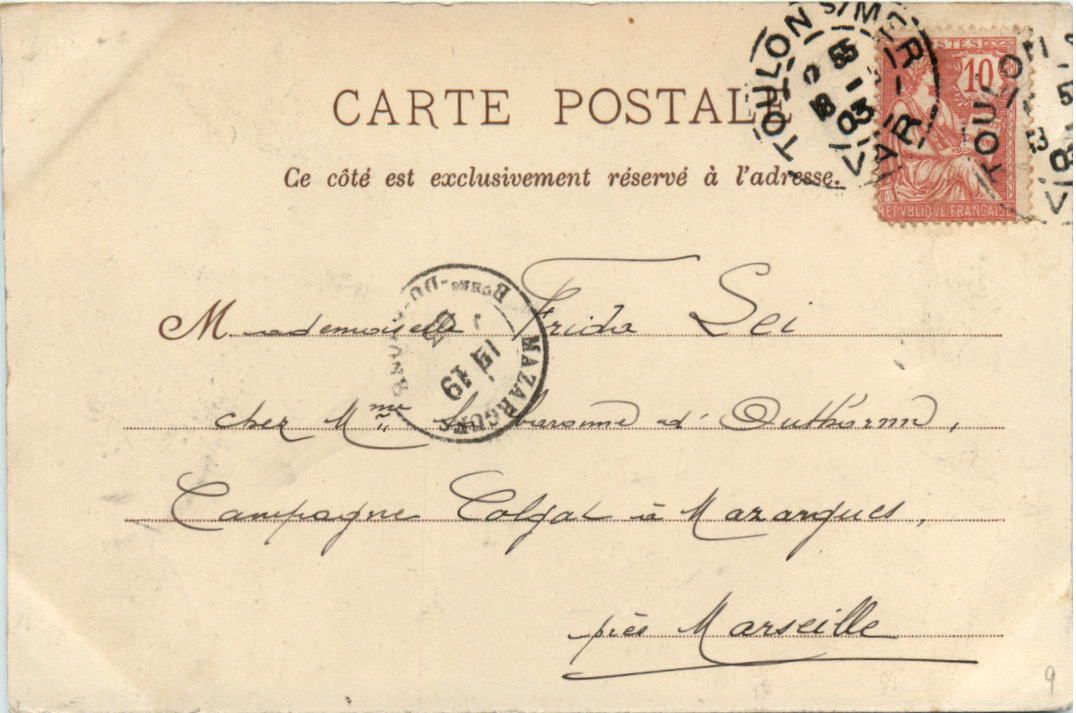 CARTE POSTALE
Ce côté est exclusivement réservé à l'adresse.
TOULON S/MER
VAR
18
03
10
POSTES
REPVBLIQVE FRANÇAISE
TOULON
03
Mademoiselle Frida Lei
chez Mme la baronne d'
Campagne Colgat à Mazargues,
près Marseille
MAZARGUES
BOUCHES-DU-RHONE
19
9